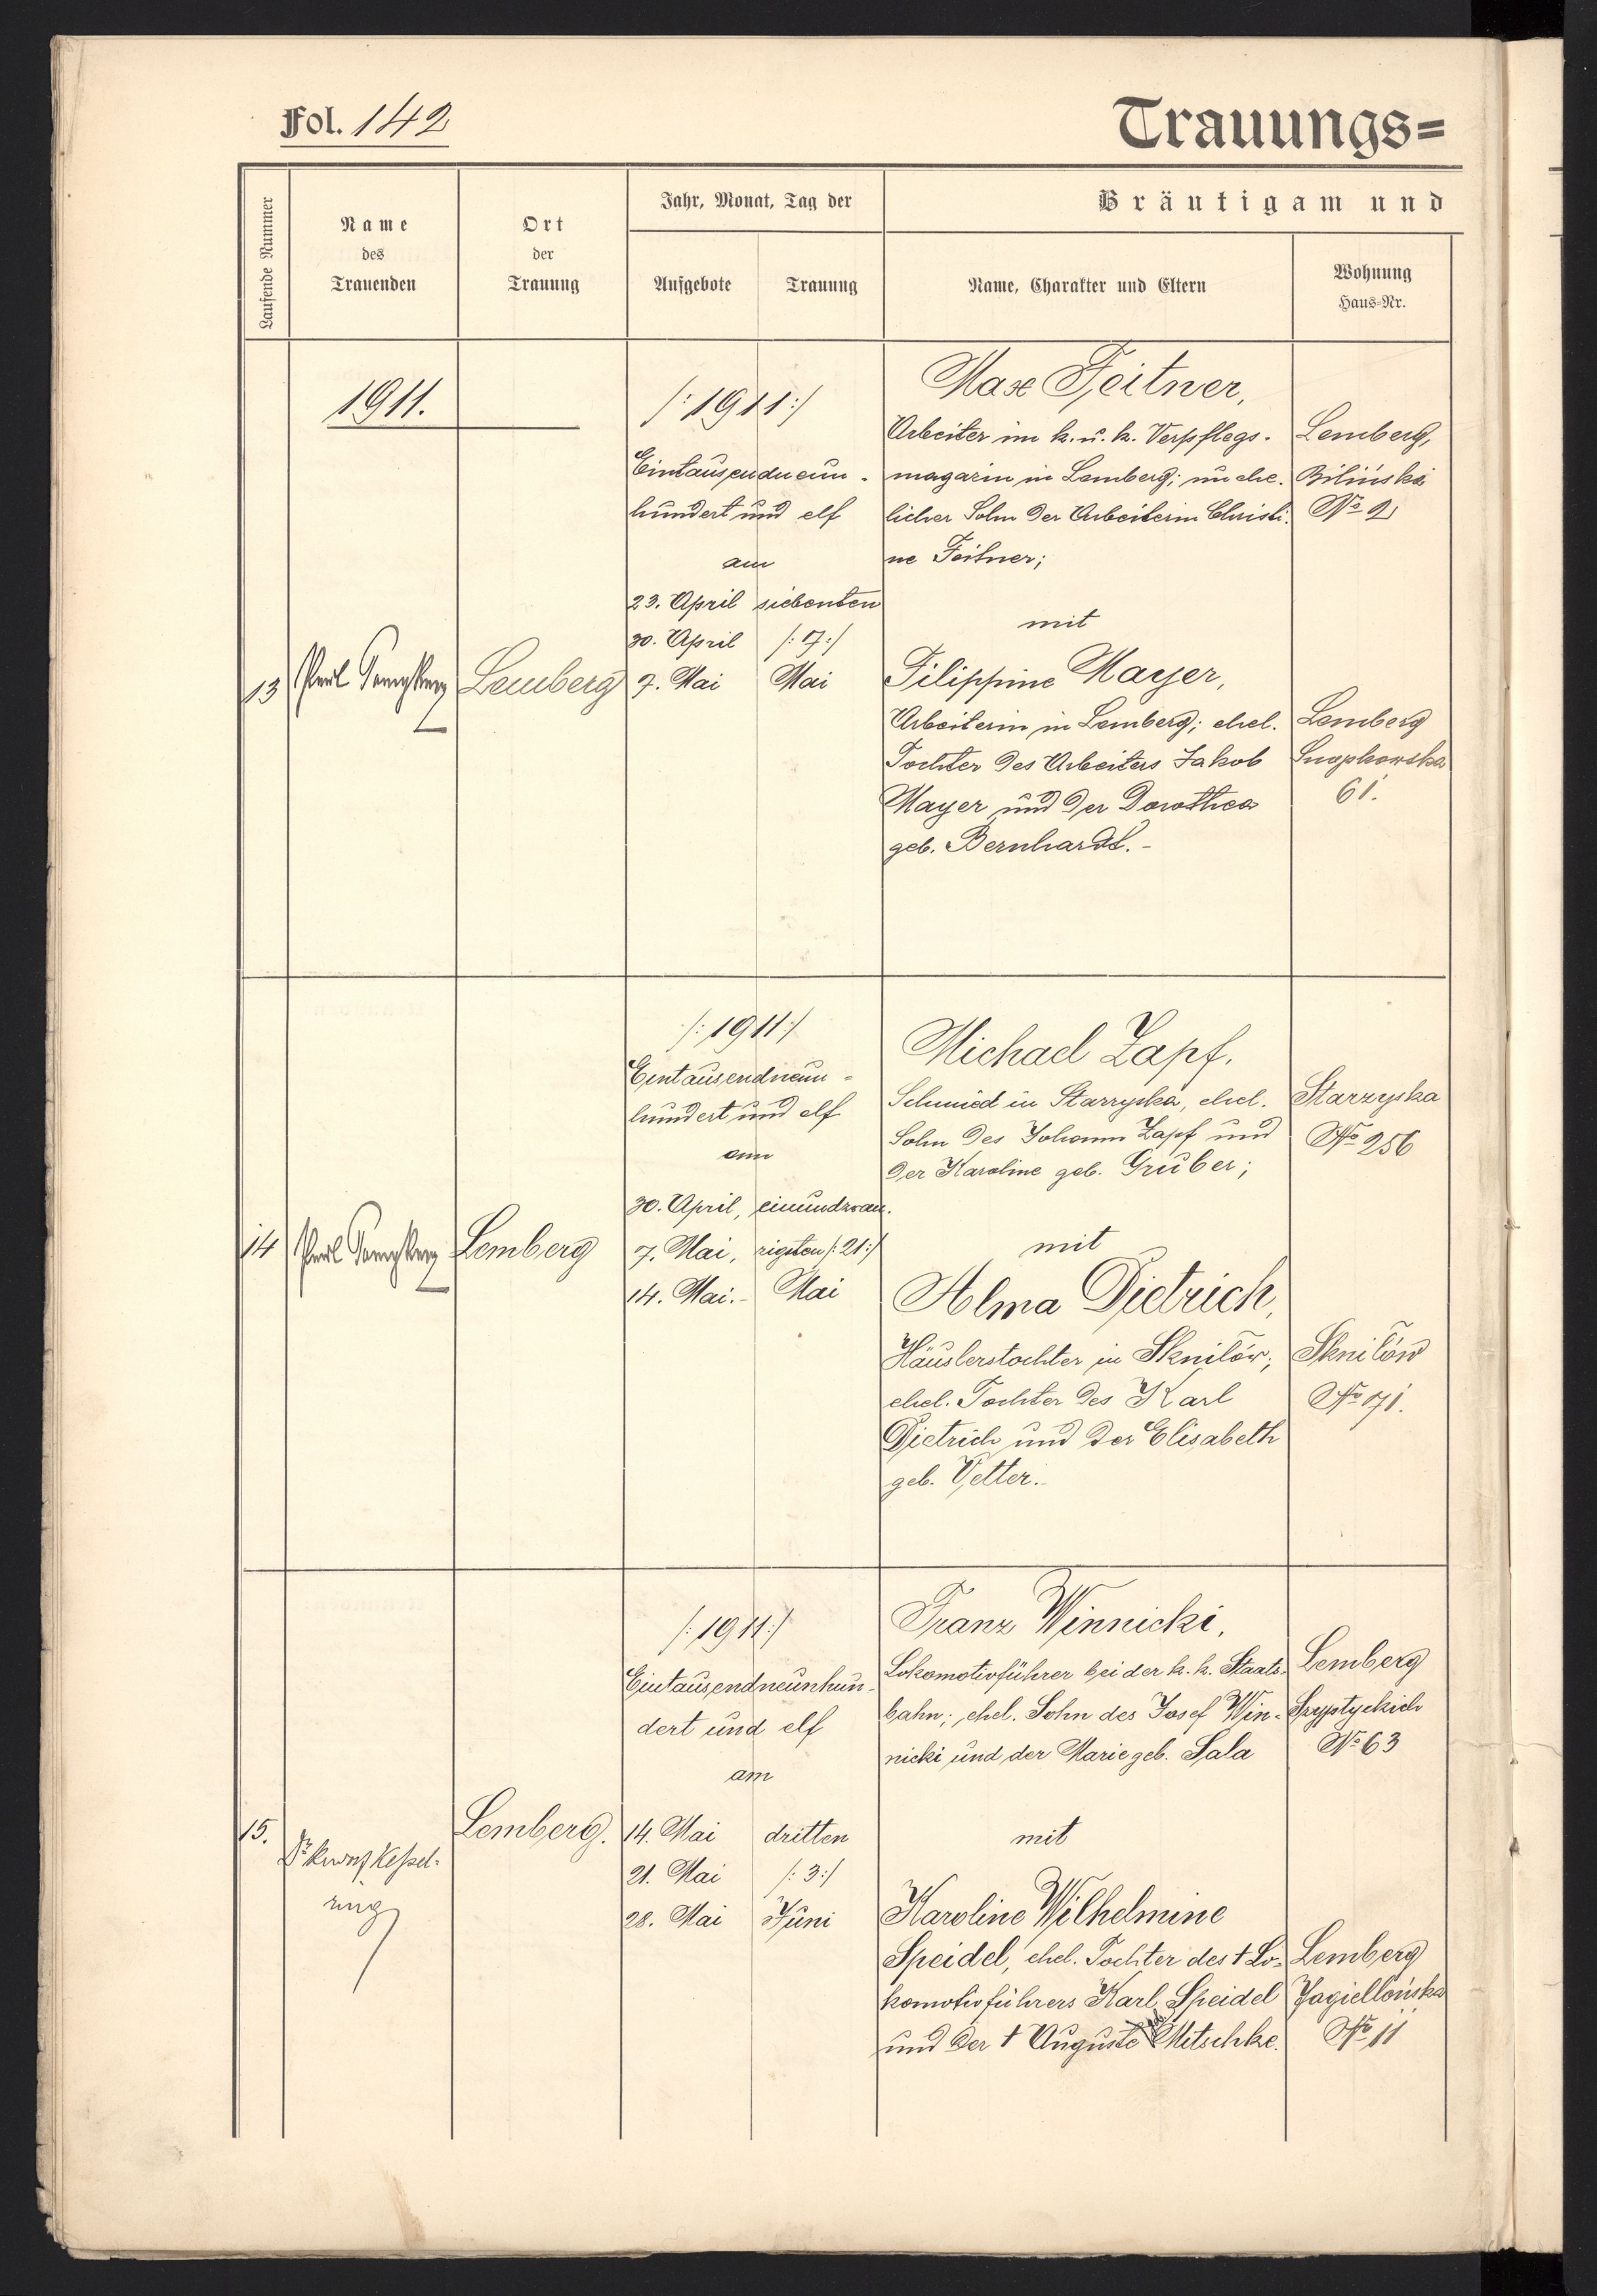 Fol. 142
Trauungs=
Laufende Nummer
Name
des
Trauenden
Ort
der
Trauung
Jahr, Monat, Tag der
Aufgebote
Trauung
Bräutigam und
Name, Charakter und Eltern
Wohnung
Haus-Nr.
1911.
13
Lemberg
/: 1911 :/
Eintausendneun-
hundert und elf
am
23. April
30. April
7. Mai
siebenten
/: 7 :/
Mai
Max Feitner,
Arbeiter im k. u. k. Verpflegs-
magazin in Lemberg; unehe-
licher Sohn der Arbeiterin Christi-
ne Feitner;
mit
Filippine Mayer,
Arbeiterin in Lemberg; ehel.
Tochter des Arbeiters Jakob
Mayer und der Dorothea
geb. Bernhardt.-
Lemberg,
Biliński
No 2
Lemberg
Snopkowska
61.
14
Lemberg
/: 1911 :/
Eintausendneun-
hundert und elf
am
30. April,
7. Mai,
14. Mai.-
einundzwan-
zigsten /: 21 :/
Mai
Michael Zapf,
Schmied in Starzyska, ehel.
Sohn des Johann Zapf und
der Karoline geb. Gruber;
mit
Alma Dietrich,
Häuslerstochter in Sknilów;
ehel. Tochter des Karl
Dietrich und der Elisabeth
geb. Vetter.-
Starzyska
No 256
Sknilów
No 71.
15.
Lemberg.
/: 1911 :/
Eintausendneunhun-
dert und elf
am
14. Mai
21. Mai
28. Mai
dritten
/: 3 :/
Juni
Franz Winnicki,
Lokomotivführer bei der k. k. Staats-
bahn; ehel. Sohn des Josef Win-
nicki und der Marie geb. Sala
mit
Karoline Wilhelmine
Speidel, ehel. Tochter des † Lo-
komotivführers Karl Speidel
und der † Auguste geb. Mitschke.
Lemberg
No 63
Lemberg
Jagiellońska
No 11